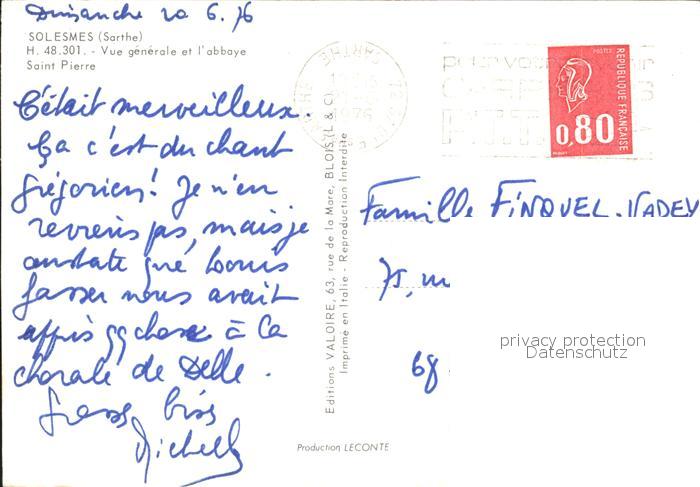 Dimanche 20 6.76
SOLESMES (Sarthe)
H. 48.301. - Vue générale et l'abbaye
Saint Pierre
C'était merveilleux.
Ça c'est du chant
grégorien! Je n'en
reviens pas, mais je
constate que Louis
Gasser nous avait
appris qq chose à la
chorale de Delle.
Grosses bises
Michelle
Editions VALOIRE, 63, rue de la Mare, BLOIS (L. & C.)
Imprimé en Italie - Reproduction Interdite
Production LECONTE
POSTES
REPUBLIQUE FRANÇAISE
0,80
1976
SARTHE
Famille FINQUEL-NADEY
75,
68
privacy protection
Datenschutz